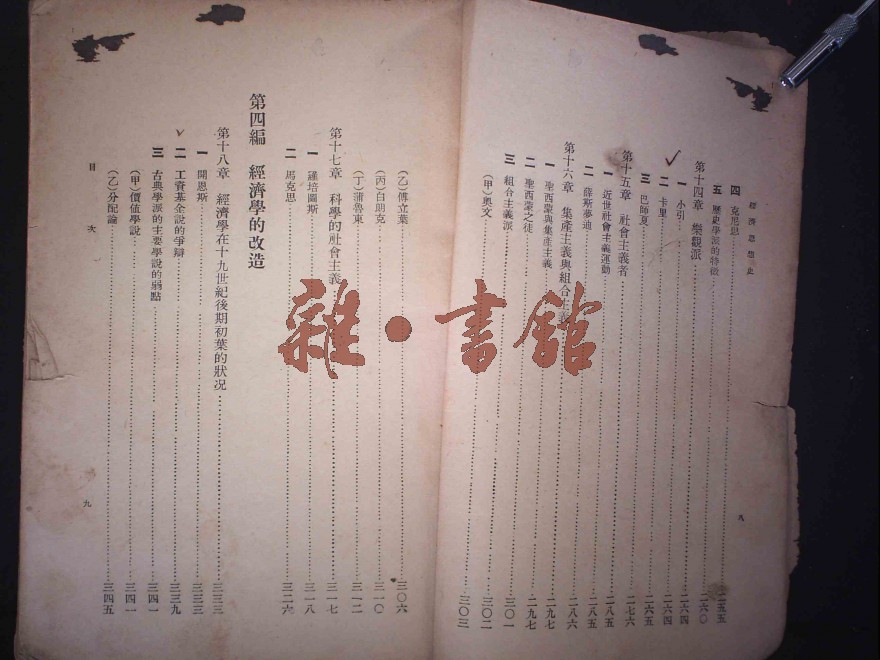 經濟思想史
四 克尼思……二五五
五 歷史學派的特徵……二六〇
第十四章 樂觀派……二六四
一 小引……二六四
二 卡里……二六五
三 巴師夏……二七六
第十五章 社會主義者……二八五
一 近世社會主義運動……二八五
二 薛斯夢迪……二八六
第十六章 集產主義與組合主義……二九七
一 聖西蒙與集產主義……二九七
二 聖西蒙之徒……三〇一
三 組合主義派……三〇二
(甲)奧文……三〇三
八
(乙)傅立葉……三〇六
(丙)白朋克……三一〇
(丁)蒲魯東……三一二
第十七章 科學的社會主義……三一七
一 羅培圖斯……三一八
二 馬克思……三二六
第四編 經濟學的改造
第十八章 經濟學在十九世紀後期初葉的狀況……三三三
一 開恩斯……三三三
二 工資基金說的爭辯……三三九
三 古典學派的主要學說的弱點……三四一
(甲)價値學說……三四一
(乙)分配論……三四五
目次
九
雜·書館